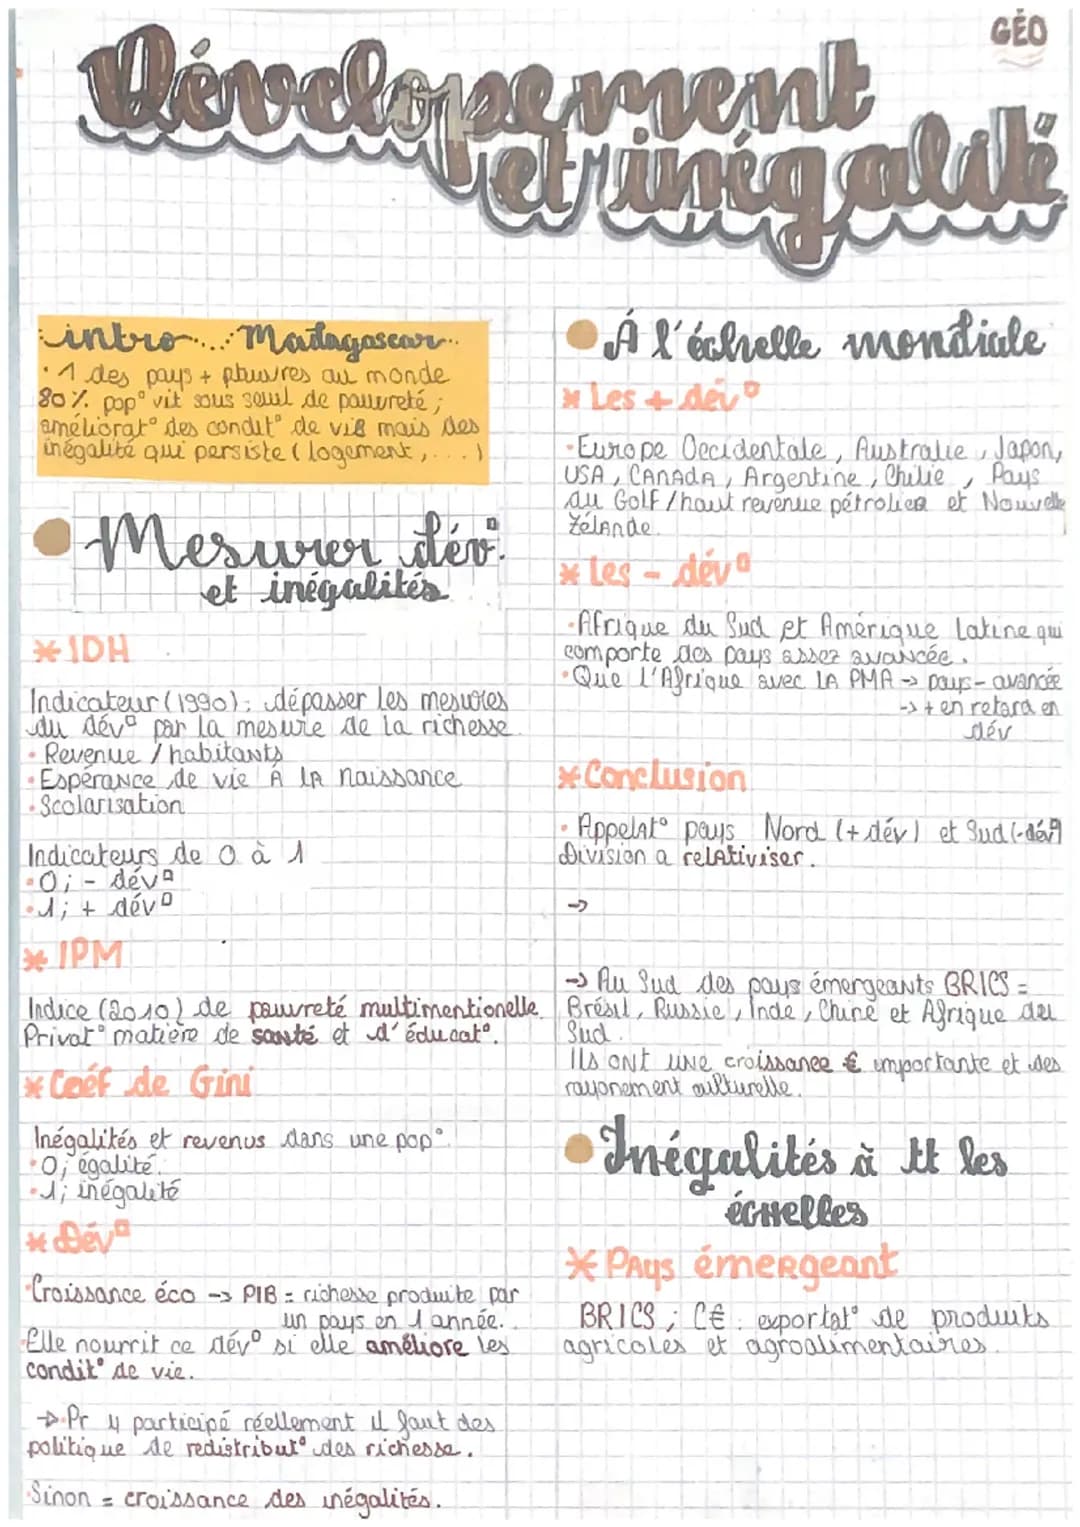 GÉO
Dévelopement
et inégalité
intro....: Madagascar..
• 1 des pays + pauvres au monde
80% pop° vit sous seuil de pauvreté ;
améliorat° des condit° de vie mais des
inégalité qui persiste ( logement , ... )
Mesurer dév°.
et inégalités
* IDH
Indicateur (1990) : dépasser les mesures
du dév° par la mesure de la richesse
• Revenue / habitants
• Espérance de vie À la naissance
• Scolarisation
Indicateurs de 0 à 1
• 0 ; - dév°
• 1 ; + dév°
* IPM
Indice (2010) de pauvreté multimentionelle.
Privat° matière de santé et d'éducat°.
* Coéf de Gini
Inégalités et revenus dans une pop°.
• 0 ; égalité.
• 1 ; inégalité
* Dév°
• Croissance éco -> PIB = richesse produite par
un pays en 1 année.
• Elle nourrit ce dév° si elle améliore les
condit° de vie.
-> • Pr y participé réellement il faut des
politique de redistribut° des richesse.
• Sinon = croissance des inégalités.
À l'échelle mondiale
* Les + dév°
• Europe Occidentale , Australie , Japon,
USA , CANADA , Argentine , Chilie , Pays
du Golf / haut revenue pétrolier et Nouvelle
Zélande.
* Les - dév°
• Afrique du Sud et Amérique Latine qui
comporte des pays assez avancée .
• Que l'Afrique avec LA PMA -> pays - avancée
-> + en retard en
dév
* Conclusion
• Appelat° pays Nord (+ dév) et Sud (- dév°)
Division a relativiser .
->
-> Au Sud des pays émergeants BRICS =
Brésil , Russie , Inde , Chine et Afrique du
Sud .
Ils ont une croissance € importante et des
rayonement culturelle.
Inégalités à tt les
échelles
* Pays émergeant
BRICS ; C€ : exportat° de produits
agricoles et agroalimentaires.